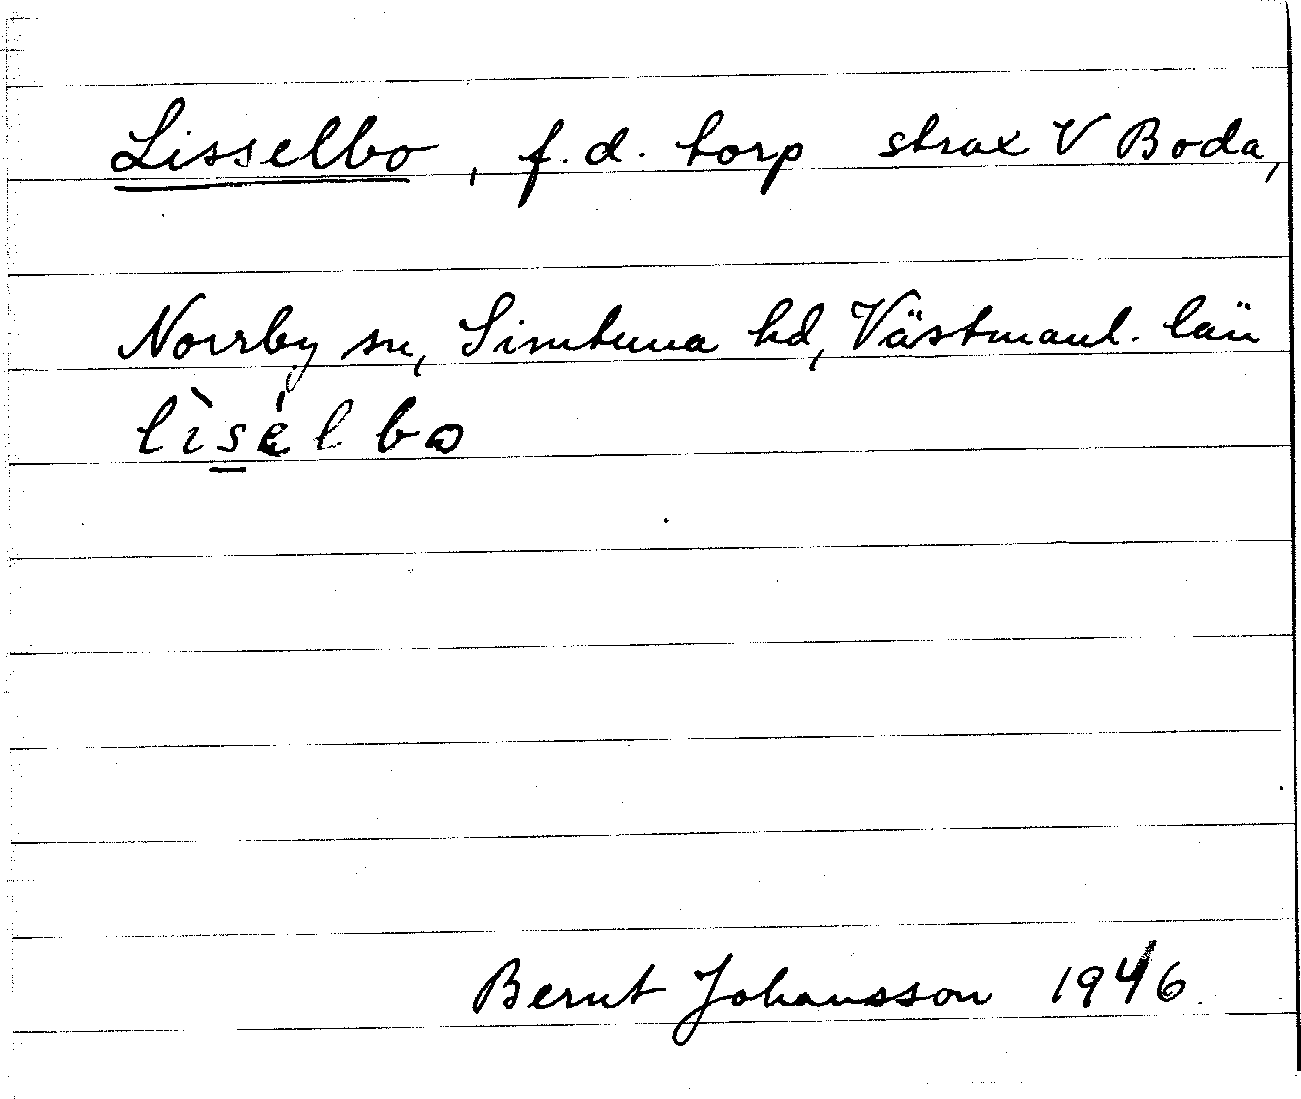 Lisselbo, f.d. torp strax V Boda,
Norrby sn, Simtuna hd, Västmanl. län
lìsélbo
Bernt Johansson 1946